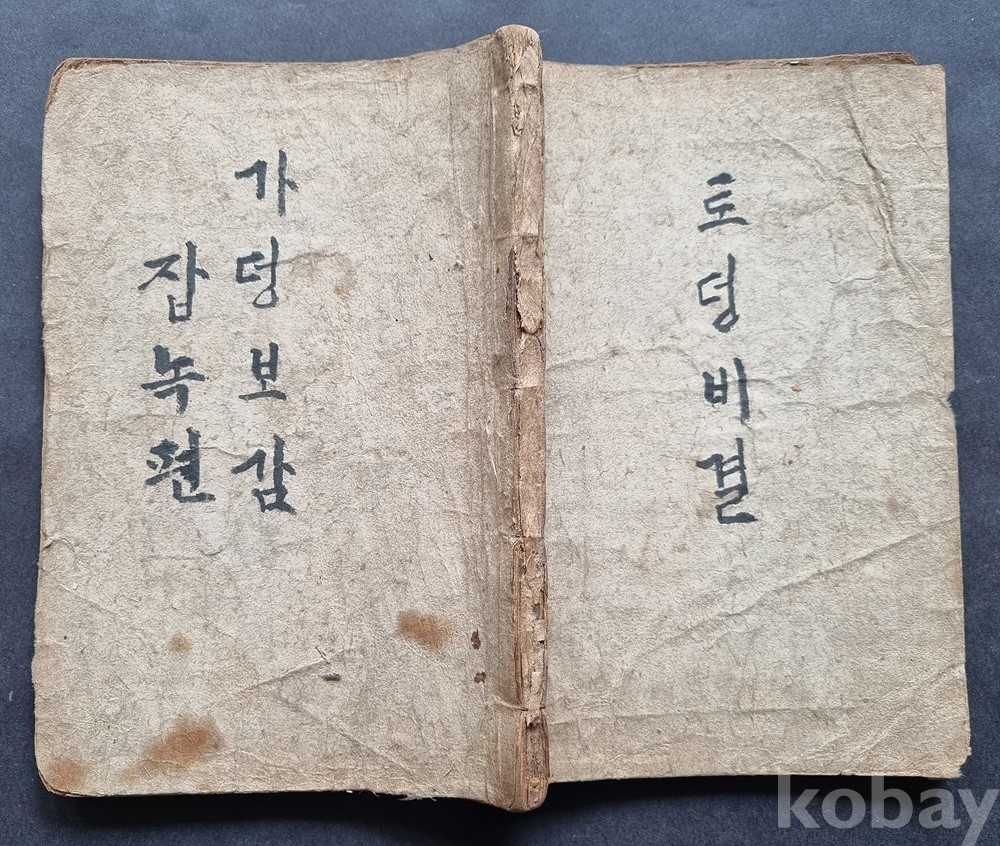 가뎡보감
잡녹편
토뎡비결
kobay